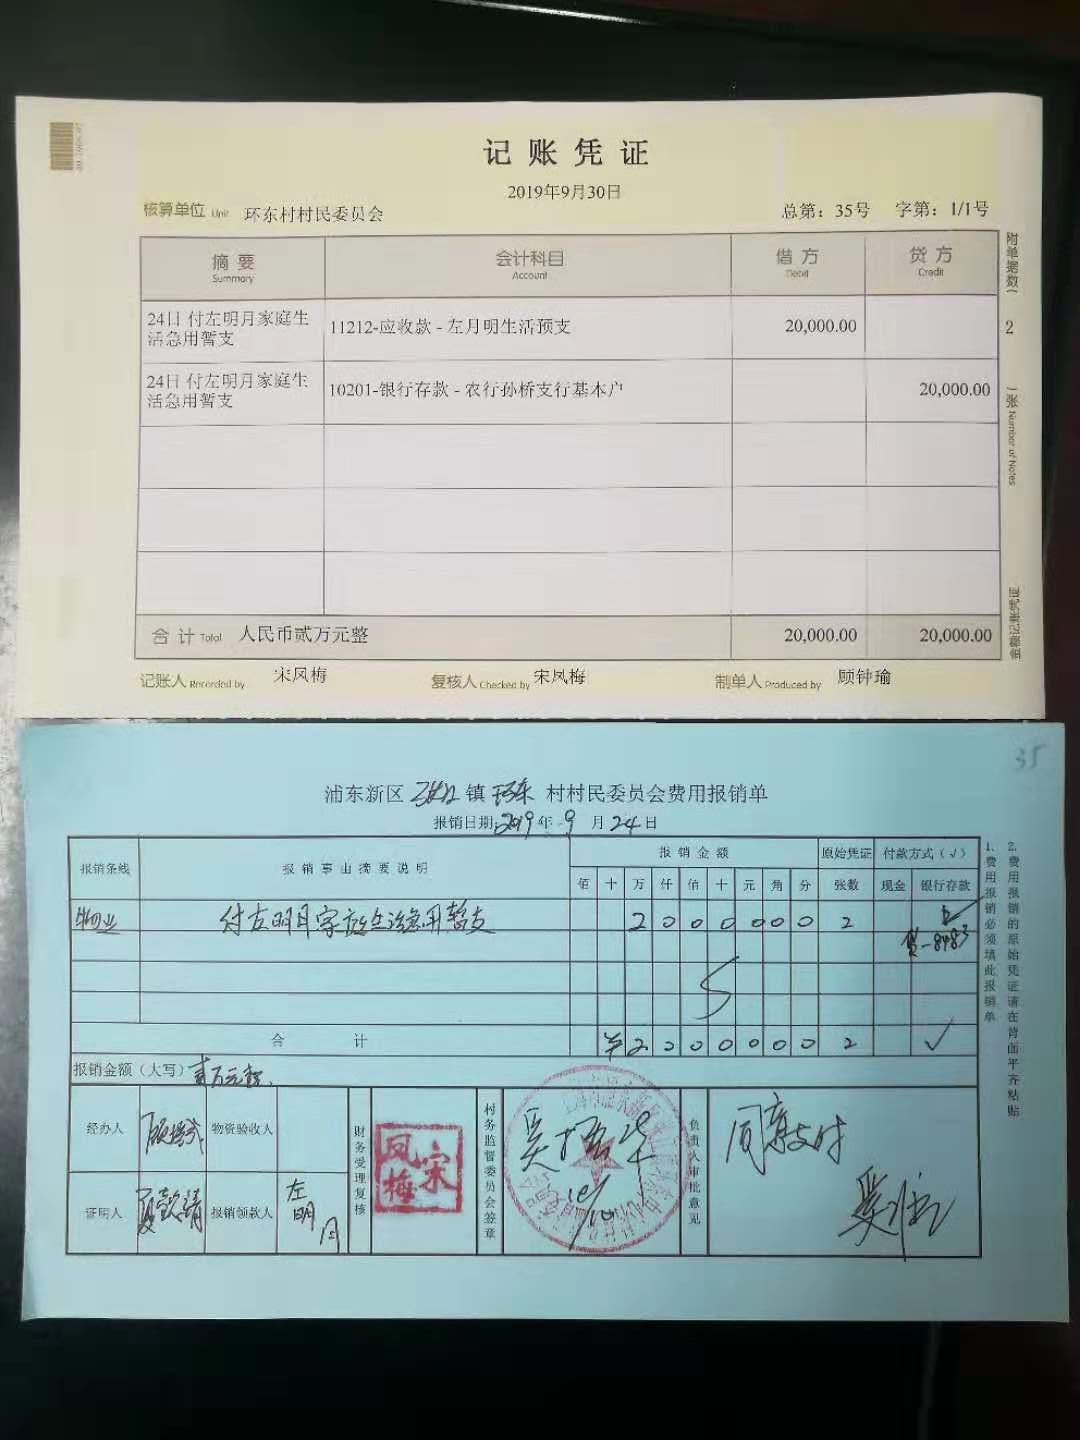 记账凭证
2019年9月30日
核算单位 Unit 环东村村民委员会
总第：35号 字第：1/1号
摘要 会计科目 借方 贷方
Summary Account Debit Credit
24日 付左明月家庭生活急用暂支 11212-应收款 - 左月明生活预支 20,000.00
24日 付左明月家庭生活急用暂支 10201-银行存款 - 农行孙桥支行基本户 20,000.00
合计 Total 人民币贰万元整 20,000.00 20,000.00
记账人 Recorded by 宋凤梅 复核人 Checked by 宋凤梅 制单人 Produced by 顾钟瑜
附单据数（ 2 ）张 Number of Notes
金额记账凭证
35
浦东新区 张江 镇 环东 村村民委员会费用报销单
报销日期：2019年 9月 24日
报销条线 报销事由摘要说明 报销金额 原始凭证 付款方式（√）
佰 十 万 仟 佰 十 元 角 分 张数 现金 银行存款
物业 付左明月家庭生活急用暂支 2 0 0 0 0 0 0 2 √
8983
合计 ¥ 2 0 0 0 0 0 0 2 √
报销金额（大写） 贰万元整
经办人 物资验收人
证明人 报销领款人 左明月
财务受理复核 宋凤梅
村务监督委员会签章 吴振华
10/10
负责人审批意见 同意支付
1. 费用报销必须填此报销单
2. 费用报销的原始凭证请在背面平齐粘贴